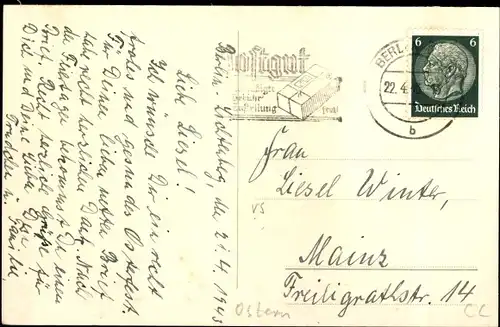 Berlin-Lichtenbg, den 21.4.1943
Liebe Liesel!
Ich wünsche Dir ein recht
frohes und gesundes Osterfest.
Für Deinen lieben netten Brief
habe recht herzlichen Dank. Nach
die Feiertage bekommst Du einen
Brief. Recht herzliche Grüße für
Dich und Deine Liebe Eure
Familie
Postgut
BERL
22.4.
b
6 6
Deutsches Reich
Frau
Liesel Winter,
Mainz
Freiligrathstr. 14
VS
Ostern
CC